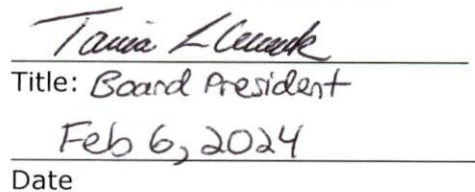 Tania L
Title: Board President
Feb 6, 2024
Date